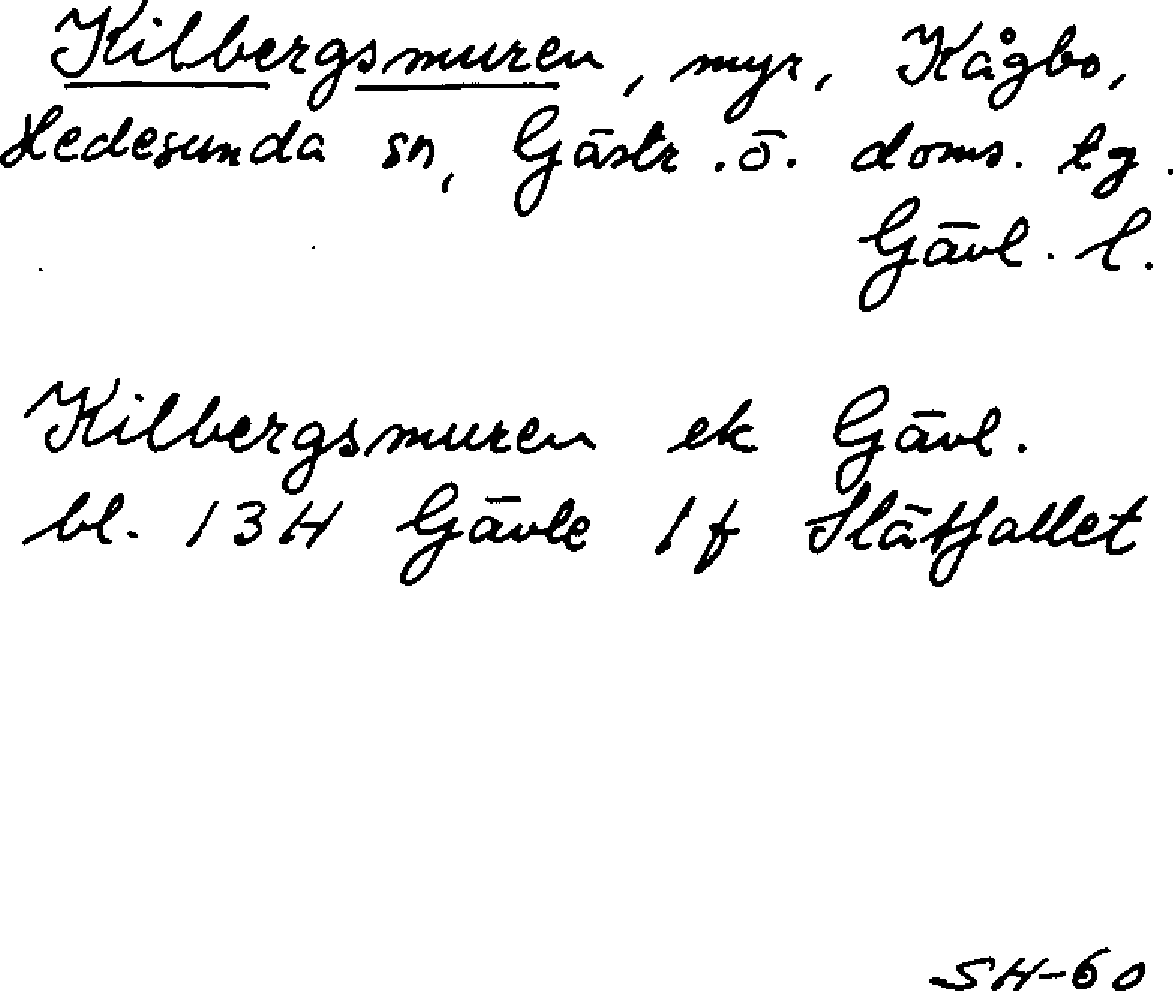 Kilbergsmuren, myr, Kågbo,
Hedesunda sn, Gästr. ö. doms. tg.
Gävl. l.
Kilbergsmuren ek Gävl.
bl. 13H Gävle 1f Slätfallet
SH-60